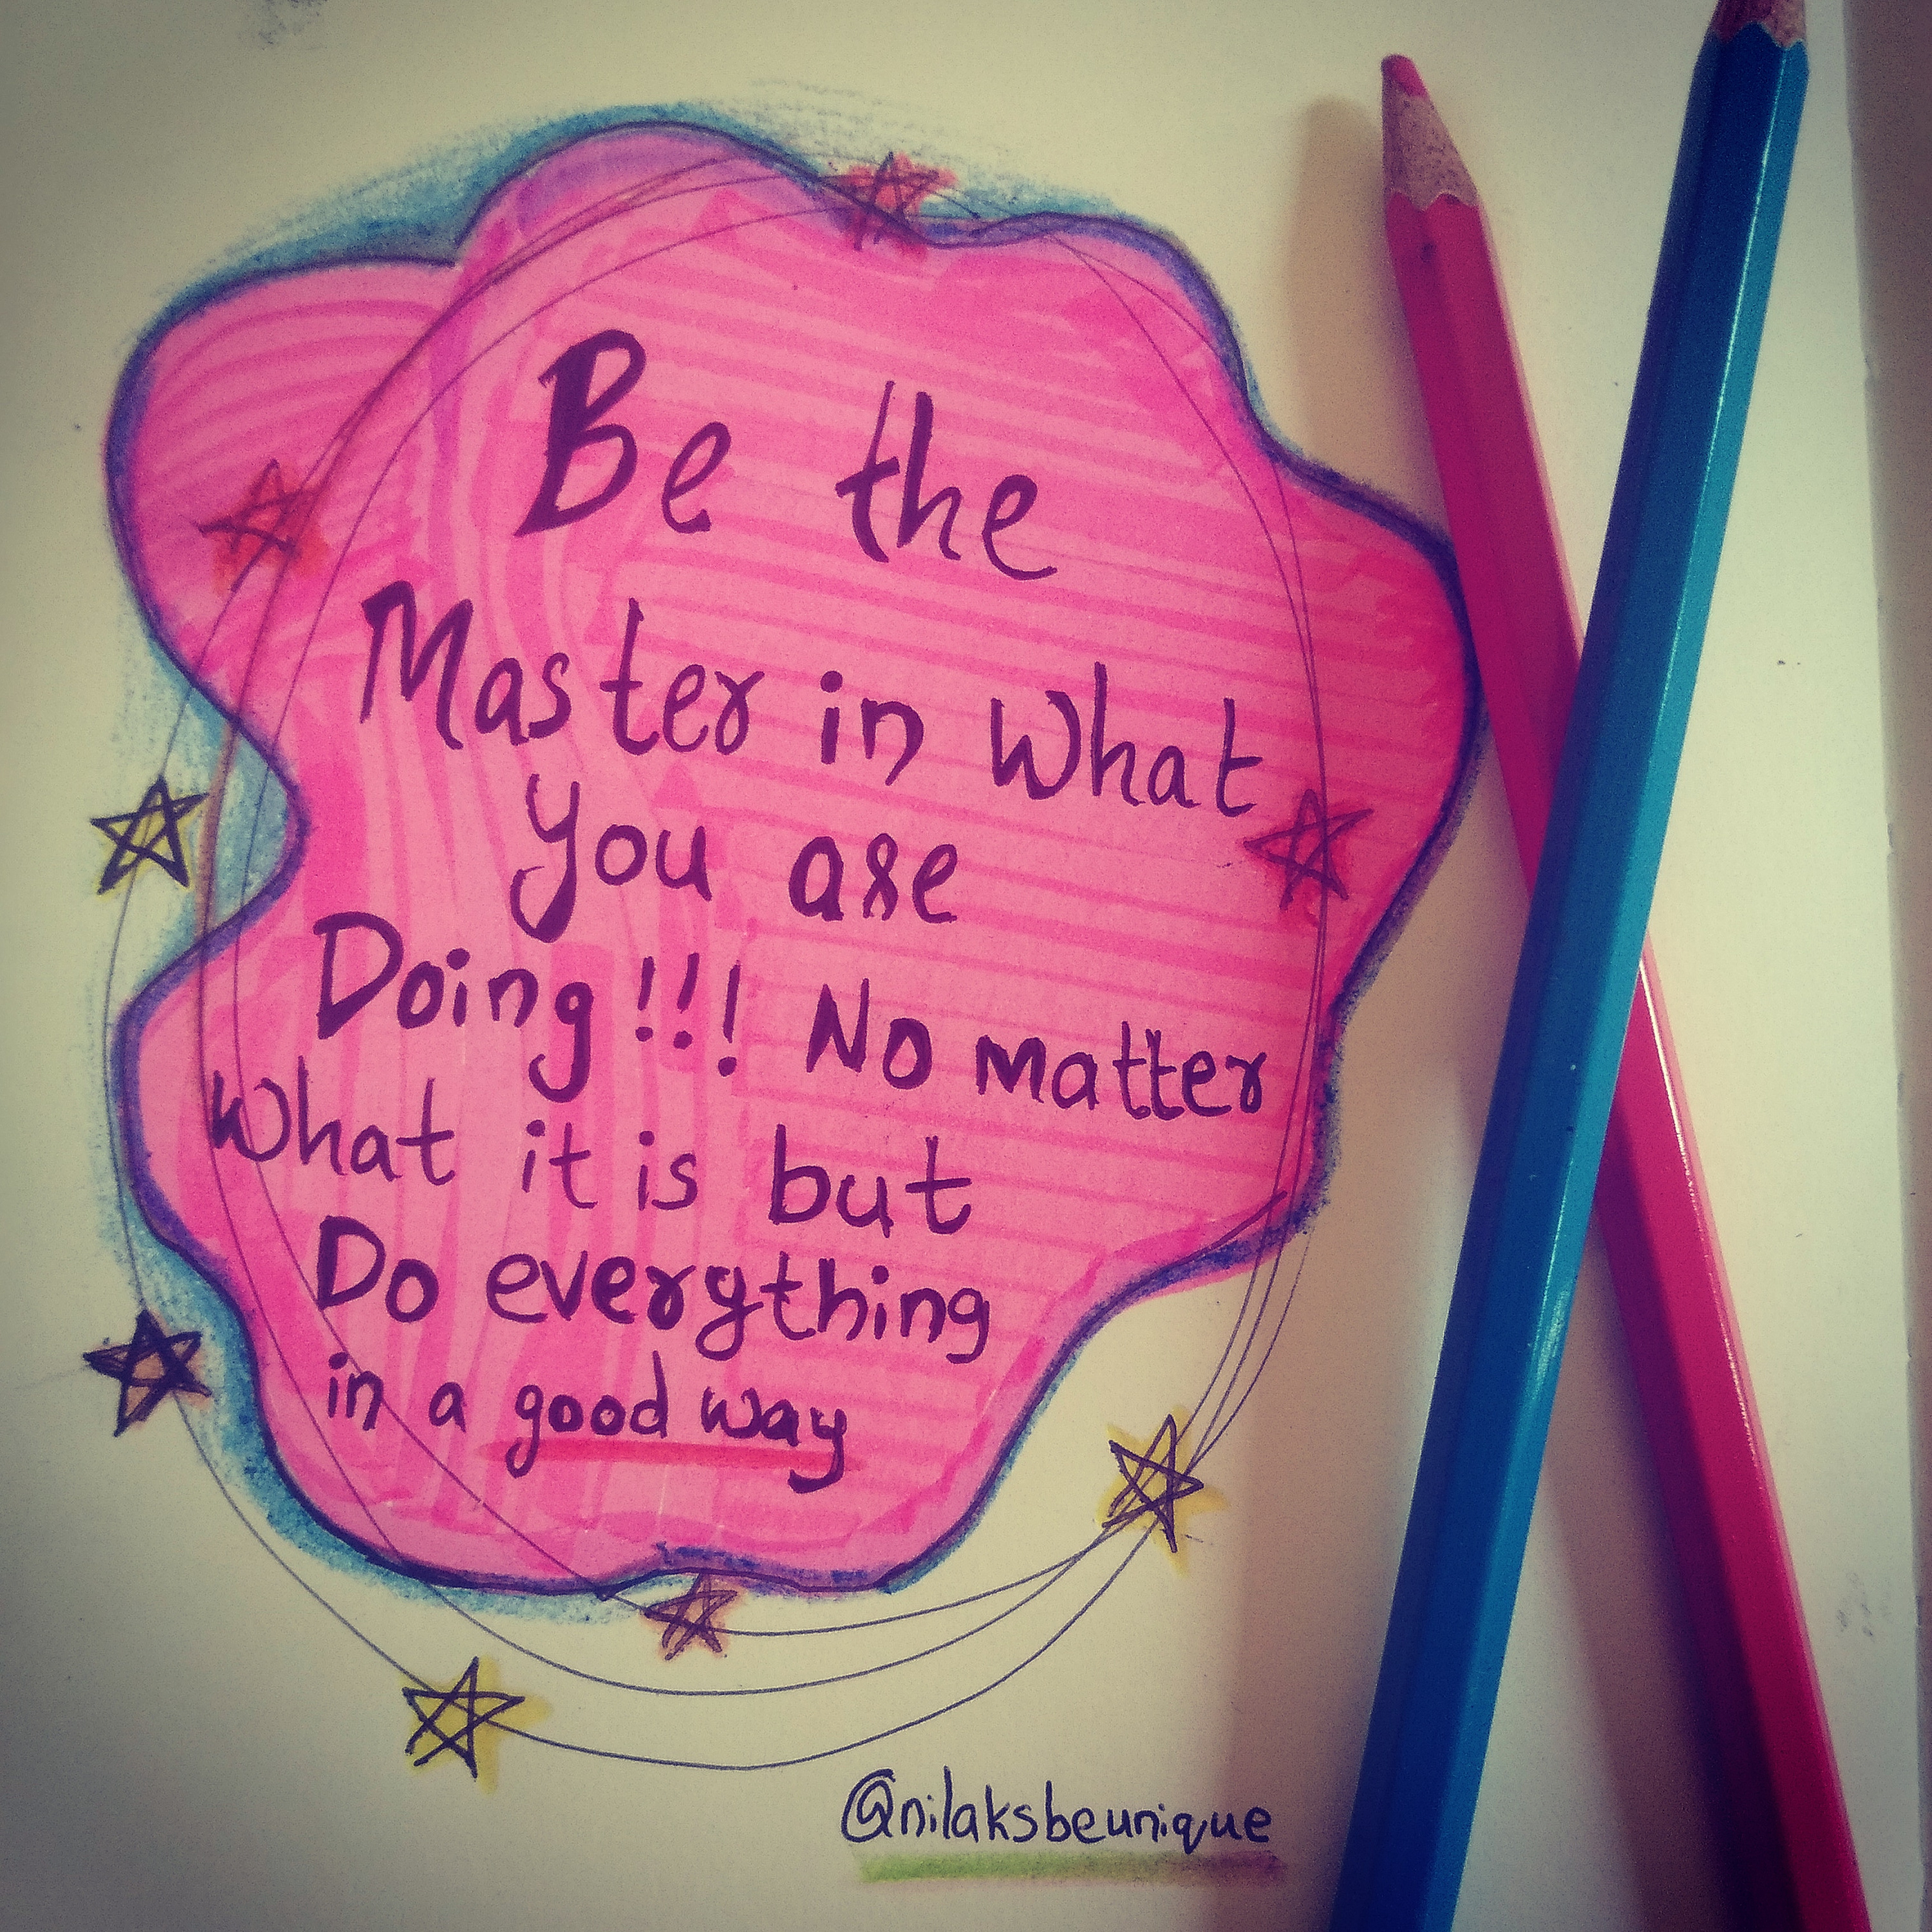 Be the
Master in What
you are
Doing!!! No matter
What it is but
Do everything
in a good way
@nilaksbeunique